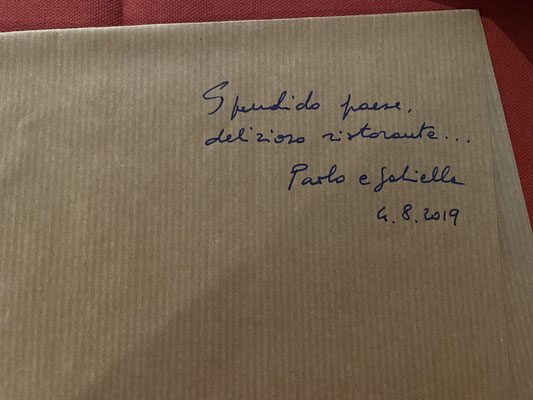 Spendido paese,
delizioso ristorante...
Paolo e Gabiella
4.8.2019